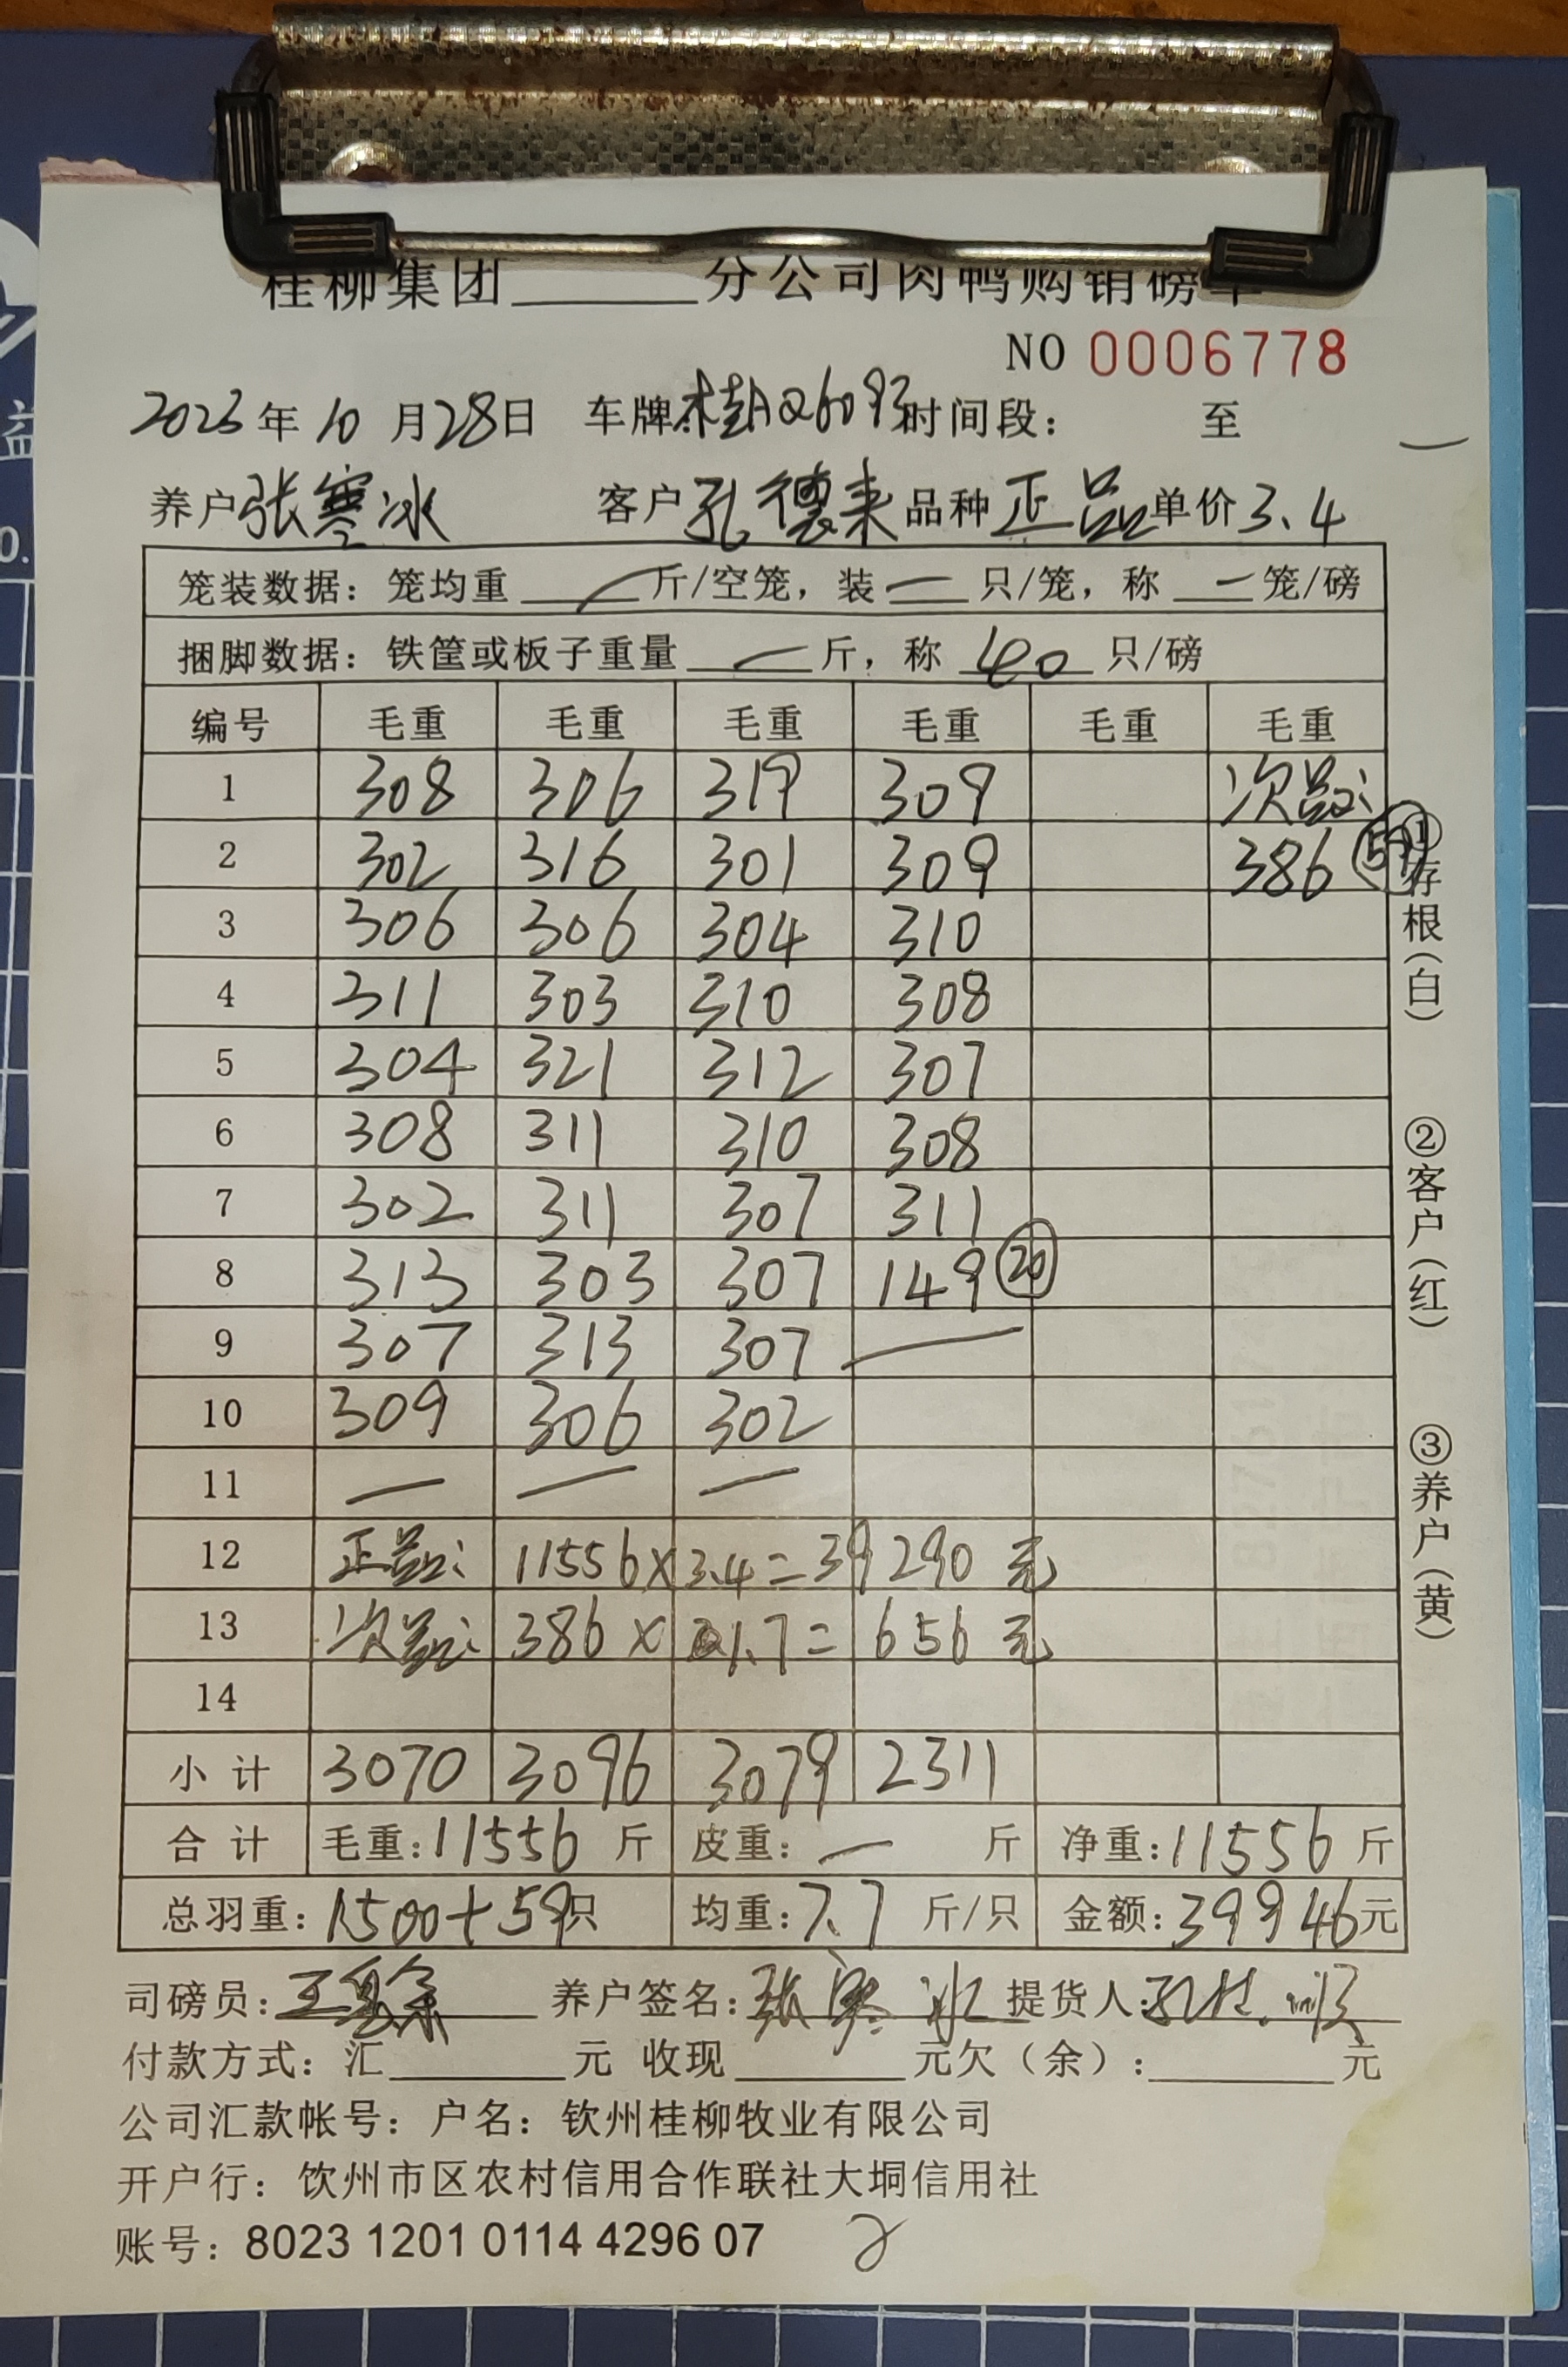 桂柳集团______分公司肉鸭购销磅单
NO 0006778
2023年10月28日 车牌:桂AQ6093 时间段: 至
养户 张寒冰 客户 孔德来 品种 正品 单价 3.4
笼装数据：笼均重 — 斤/空笼，装 — 只/笼，称 — 笼/磅
捆脚数据：铁筐或板子重量 — 斤，称 40 只/磅
编号 毛重 毛重 毛重 毛重 毛重 毛重
1 308 306 319 309 次品:
2 302 316 301 309 386 59
3 306 306 304 310
4 311 303 310 308
5 304 321 312 307
6 308 311 310 308
7 302 311 307 311
8 313 303 307 149 20
9 307 313 307 —
10 309 306 302
11 — — —
12 正品: 11556×3.4=39290 元
13 次品: 386×1.7=656 元
14
小计 3070 3096 3079 2311
合计 毛重:11556 斤 皮重: — 斤 净重:11556 斤
总羽重:1500+59只 均重:7.7 斤/只 金额:39946元
司磅员: 养户签名:张寒冰 提货人:
付款方式：汇______元 收现______元欠（余）:______元
公司汇款帐号：户名：钦州桂柳牧业有限公司
开户行：饮州市区农村信用合作联社大垌信用社
账号：8023 1201 0114 4296 07
①存根(白)
②客户(红)
③养户(黄)